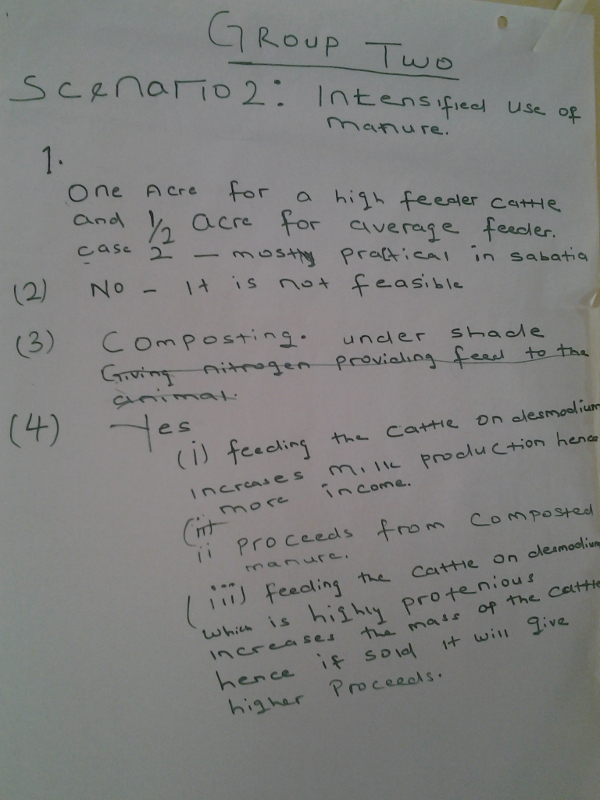 GROUP TWO
Scenario 2: Intensified use of
manure.
1.
One Acre for a high feeder cattle
and 1/2 acre for average feeder.
case 2 – mostly practical in sabatia
(2) No – It is not feasible
(3) Composting. under shade
Giving nitrogen providing feed to the
animal.
(4) Yes
(i) feeding the cattle on desmodium
increases milk production hence
more income.
(ii
ii Proceeds from composted
manure.
(iii) feeding the cattle on desmodium
which is highly protenious
increases the mass of the cattle
hence if sold it will give
higher Proceeds.